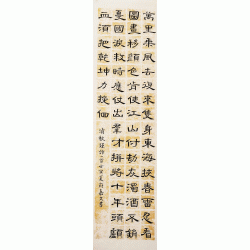 萬里乘風去復來隻身東海挾春雷忍看
圖畫移顏色肯使江山付劫灰濁酒不銷
憂國淚救時應仗出羣才拼將十萬頭顱
血須把乾坤力挽回
清秋瑾詩一首